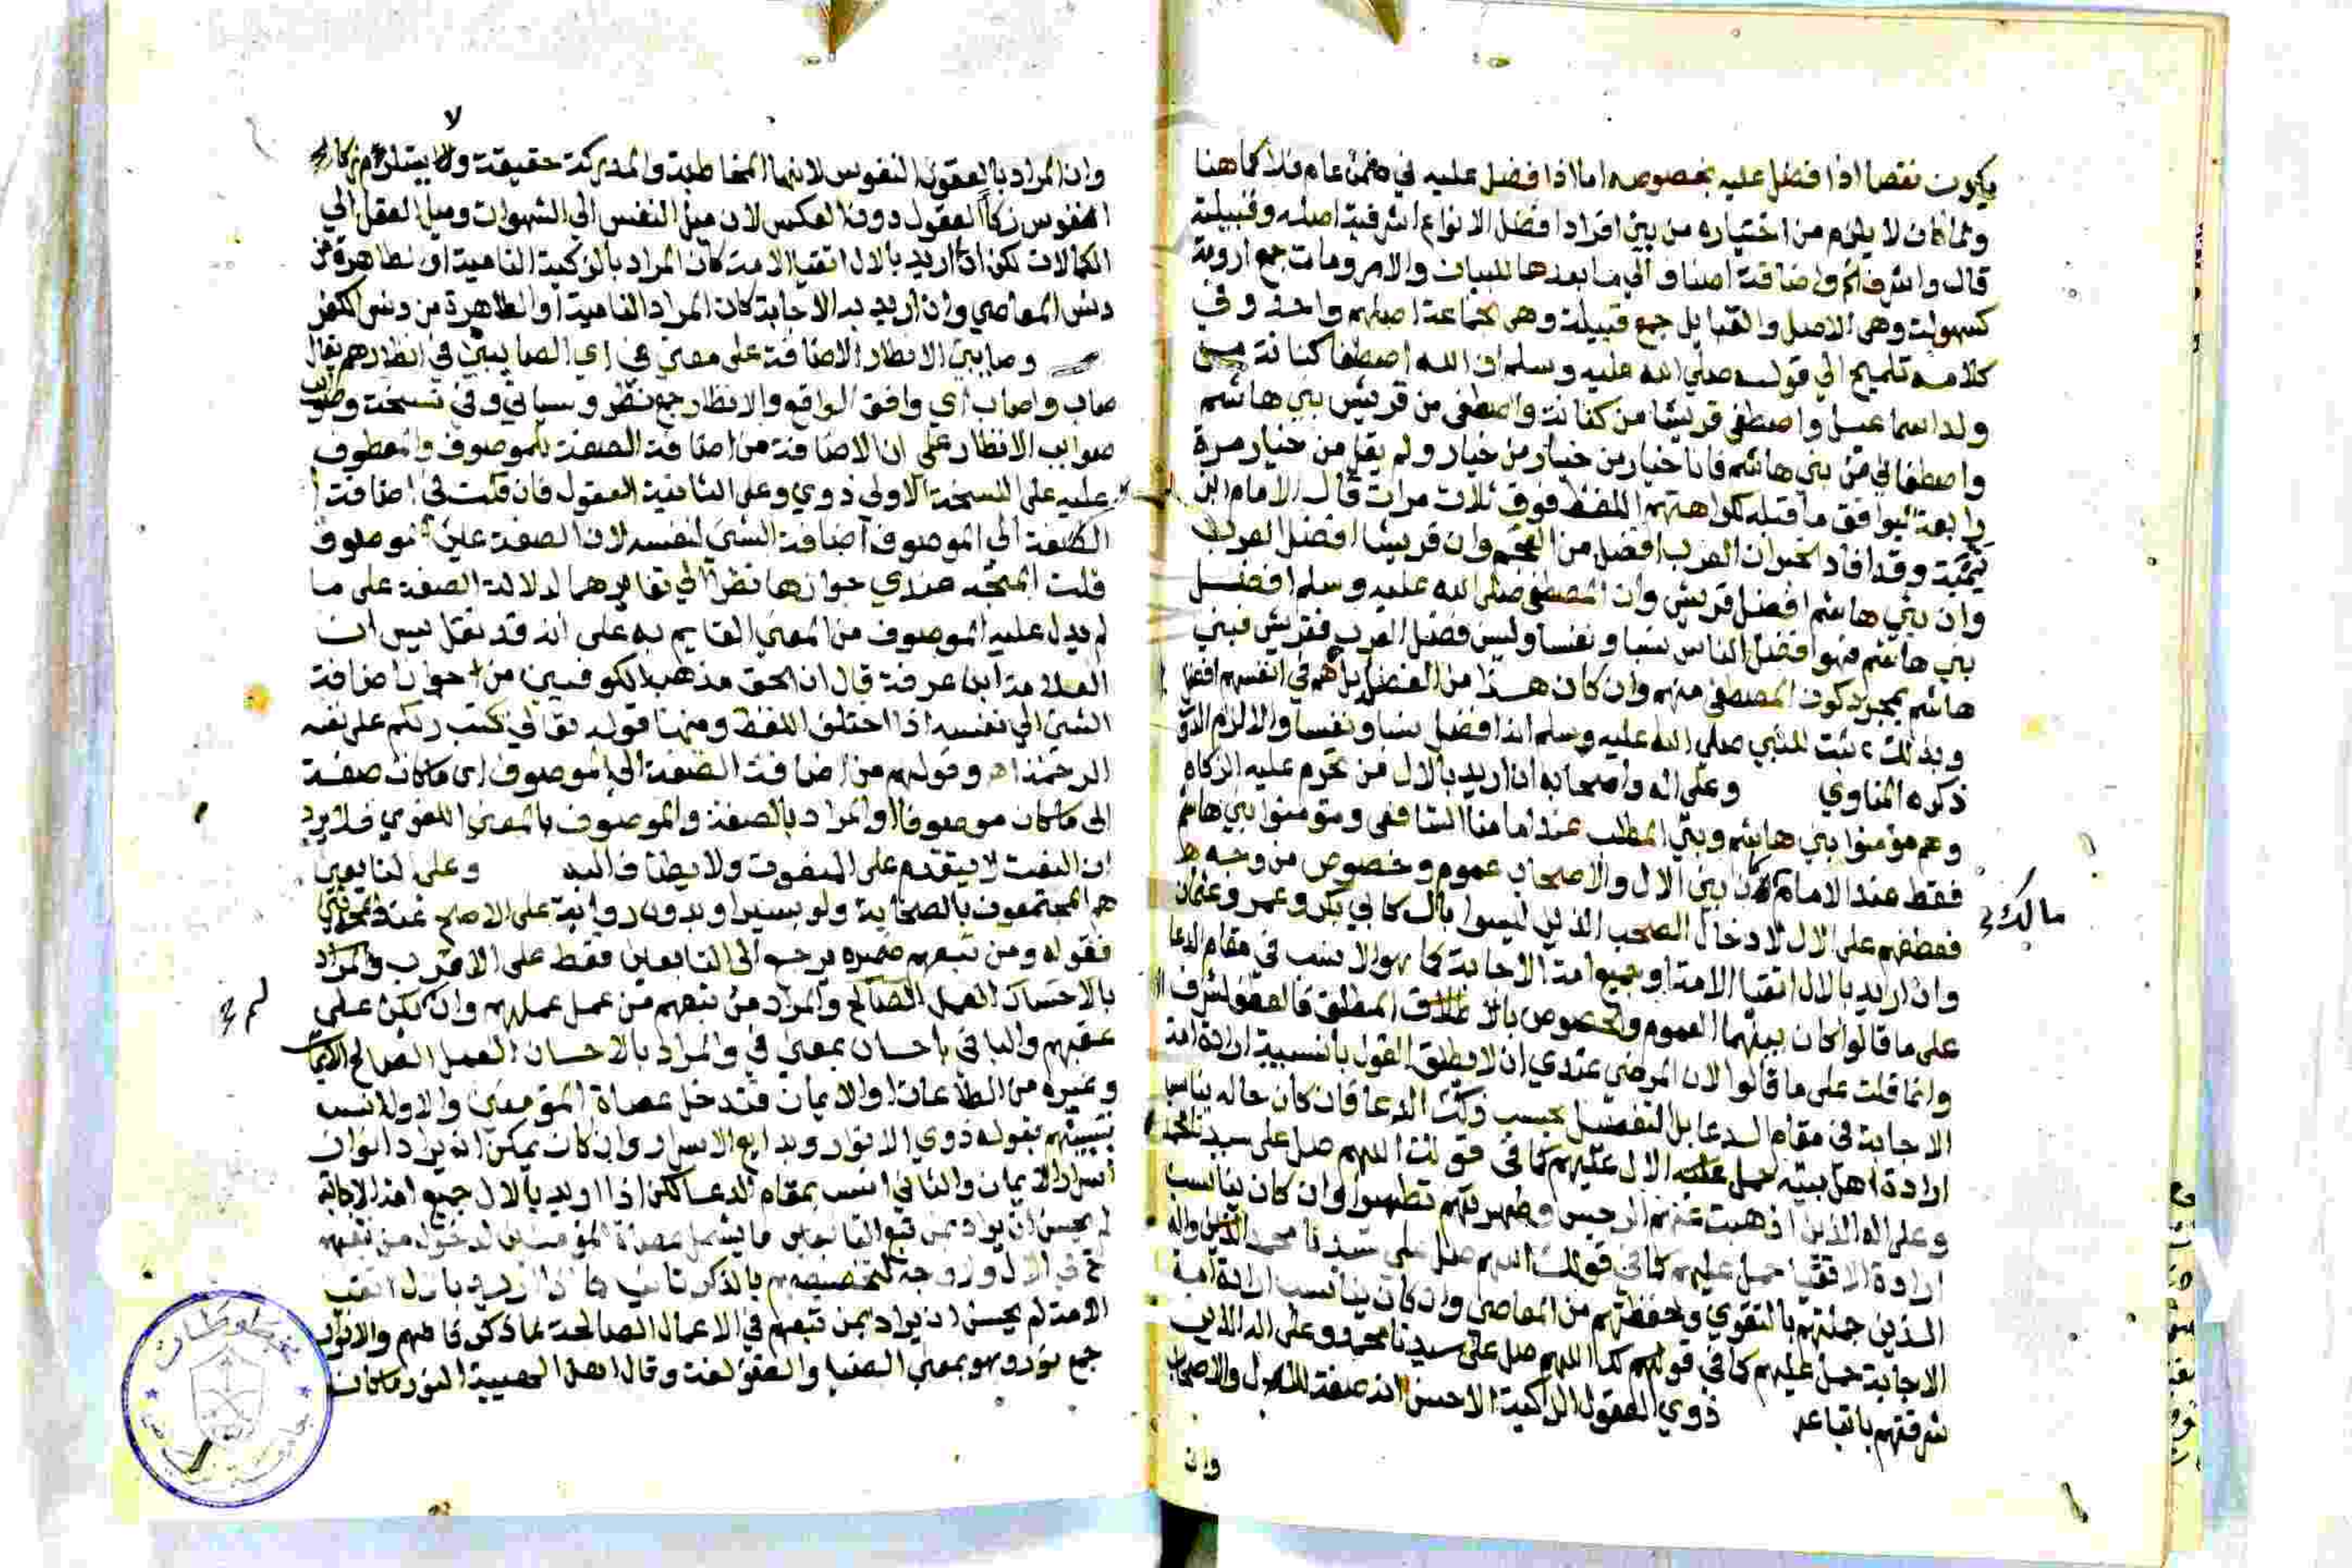 يكون نقصا اذا فضل عليه بخصوصه اما اذا فضل عليه في ضمن عام فلا كما هنا
ولما كان لا يلزم من اختياره من بين افراد افضل الانواع اشرفية اصله وقبيلته
قال واشرف واضافة اصناف الي ما بعدها للبيان والارومات جمع ارومة
كسهولة وهي الاصل والقبايل جمع قبيلة وهي جماعة اصلهم واحد وفي
كلامه تلميح الي قوله صلي الله عليه وسلم ان الله اصطفا كنانة من
ولد اسماعيل واصطفي قريشا من كنانة واصطفي من قريش بني هاشم
واصطفاني من بني هاشم فانا خيار من خيار من خيار ولم يقل من خيار مرة
رابعة ليوافق ما قبله لكراهتهم اللفظ فوق ثلاث مرات قال الامام ابن
تيمية وقد افاد الخبر ان العرب افضل من العجم وان قريشا افضل العرب
وان بني هاشم افضل قريش وان المصطفي صلي الله عليه وسلم افضل
بني هاشم فهو افضل الناس نسبا ونفسا وليس فضل العرب فقريش فبني
هاشم بمجرد كون المصطفي منهم وان كان هذا من الفضل بل هم في انفسهم افضل
وبذلك ثبت للنبي صلي الله عليه وسلم انه افضل نسبا ونفسا والا لزم الدور
ذكره المناوي وعلي اله واصحابه ان اريد بالال من تحرم عليه الزكاة
وهم مؤمنوا بني هاشم وبني المطلب عند امامنا الشافعي ومؤمنوا بني هاشم
فقط عند الامام كان بين الال والاصحاب عموم وخصوص من وجه
مالك
فعطفهم على الال لادخال الصحب الذين ليسوا بال كابي بكر وعمر وعثمان
وان اريد بالال اتقيا الامة او جميع امة الاجابة كما هو الانسب في مقام الدعا
على ما قالوا كان بينهما العموم والخصوص باطلاق المطلق
وانما قلت على ما قالوا لان المرضي عندي ان لا يطلق القول بانسبية ارادة امة
الاجابة في مقام الدعا بل التفصيل بحسب الدعا فان كان حاله يناسب
ارادة اهل بيته حمل عليه الال عليهم كما في قولك اللهم صل على سيدنا محمد
وعلى اله الذين اذهبت عنهم الرجس وطهرتهم تطهيرا وان كان يناسب
ارادة الاتقيا حمل عليهم كما في قولك اللهم صل على سيدنا محمد واله
الذين بالتقوي وحفظتهم من المعاصي وان كان يناسب ارادة امة
الاجابة حمل عليهم كما في قولهم اللهم صل على سيدنا محمد وعلى اله الذين
شرفتهم باتباعه ذوي العقول الزاكية الاحسن انه صفة للال والاصحاب
وان
لا
وان المراد بالعقول النفوس لانها المخاطبة والمدركة حقيقة ولا يستلزم
النفوس زكا العقول دون العكس لان ميل النفس الي الشهوات وميل العقل الي
الكمالات لكن ان اريد بالال اتقيا الامة كان المراد بالزكية النامية او الطاهرة من
دنس المعاصي وان اريد به الاجابة كان المراد النامية او الطاهرة من دنس الكفر
وصايبي الانظار الاضافة على معني في اي الصايبين في انظارهم يقال
صاب واصاب اي وافق الواقع والانظار جمع نظر وسياتي وفي نسخة
صوايب الانظار على ان الاضافة من اضافة الصفة للموصوف والمعطوف
عليه على النسخة الاولي ذوي وعلى الثانية العقول فان قلت في اضافة
الصفة الي الموصوف اضافة الشي لنفسه لان الصفة عين الموصوف
قلت المتجه عندي جوازها نظرا الي تغايرهما لدلالة الصفة على ما
لم يدل عليه الموصوف من المعني القايم به على انه قد نقل يس ان
العلامة ابن عرفة قال ان الحق مذهب الكوفيين من جواز اضافة
الشي الي نفسه اذا اختلف اللفظ ومنها قوله تعالي كتب ربكم على نفسه
الرحمة اه وقولهم من اضافة الصفة الي الموصوف اي ما كان صفة
الي ما كان موصوفا او المراد بالصفة والموصوف بالمعني اللغوي فلا يرد
ان النعت لا يتقدم على المنعوت ولا يضاف اليه وعلى التابعين
هم المجتمعون بالصحابة ولو يسيرا وبدون رواية على الاصح عند
فقوله ومن تبعهم ضميره يرجع الي التابعين فقط على الاقرب والمراد
بالاحسان العمل الصالح والمراد من تبعهم من عمل عملهم وان يكن على
لم
عقبهم والبا في باحسان بمعني في والمراد بالاحسان العمل الصالح الايمان
وغيره من الطاعات او الايمان فتدخل عصاة المؤمنين والاول انسب
بقوله ذوي الانوار وبدايع الاسرار وان كان يمكن ان يراد انوار
اسرار الايمان والثاني انسب بمقام الدعا لكن اذا اريد بالال جميع امة الاجابة
لم يحسن ان يراد بمن تبع التابعين ما يشمل عصاة المؤمنين لدخول من تبعهم
في الال لتخصيصهم بالذكر
الامة لم يحسن ان يراد بمن تبعهم في الاعمال الصالحة لما ذكر فافهم والانوار
جمع نور وهو بمعني الضيا والضوء لغة وقال اهل النور ما كان